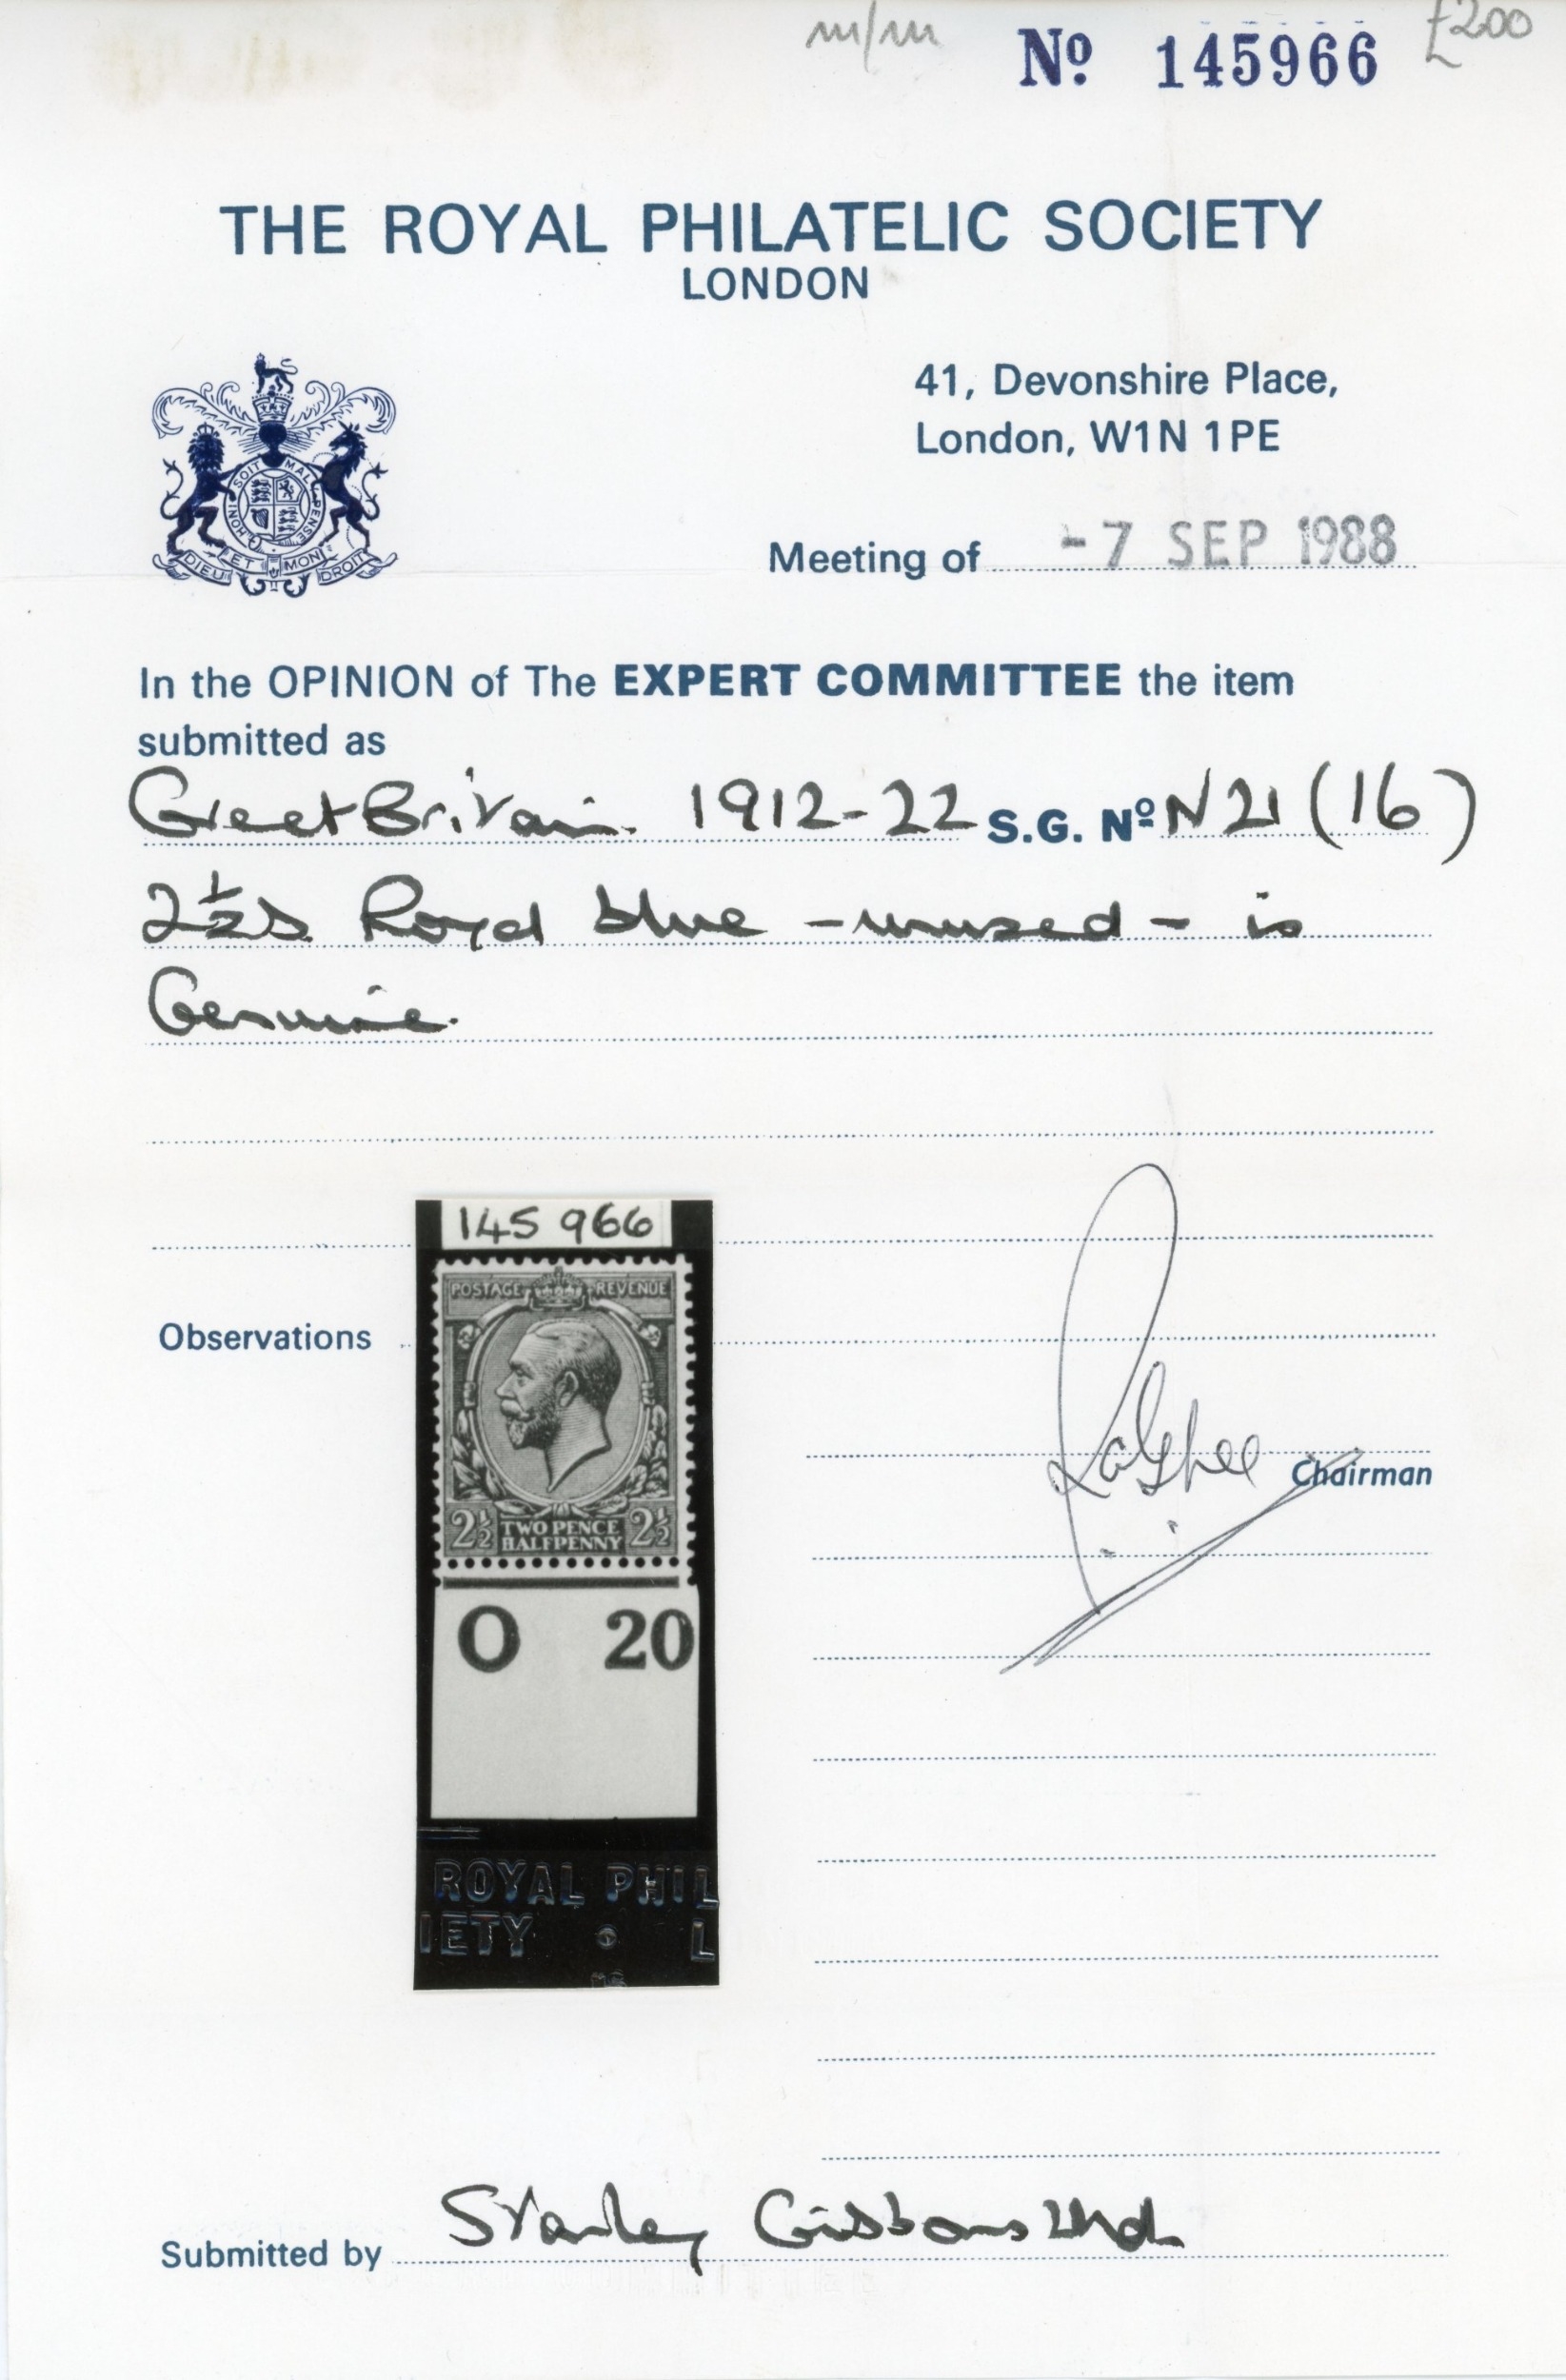 m/m
£200
Nº 145966
THE ROYAL PHILATELIC SOCIETY
LONDON
41, Devonshire Place,
London, W1N 1PE
HONI SOIT MAL Y PENSE
DIEU ET MON DROIT
Meeting of -7 SEP 1988
In the OPINION of The EXPERT COMMITTEE the item
submitted as
Great Britain 1912-22 S.G. Nº N21 (16)
2½d Royal blue - unused - is
Genuine.
145 966
POSTAGE REVENUE
2½ TWO PENCE HALFPENNY 2½
O 20
ROYAL PHIL
IETY L
Observations
Chairman
Submitted by Stanley Gibbons Ltd.